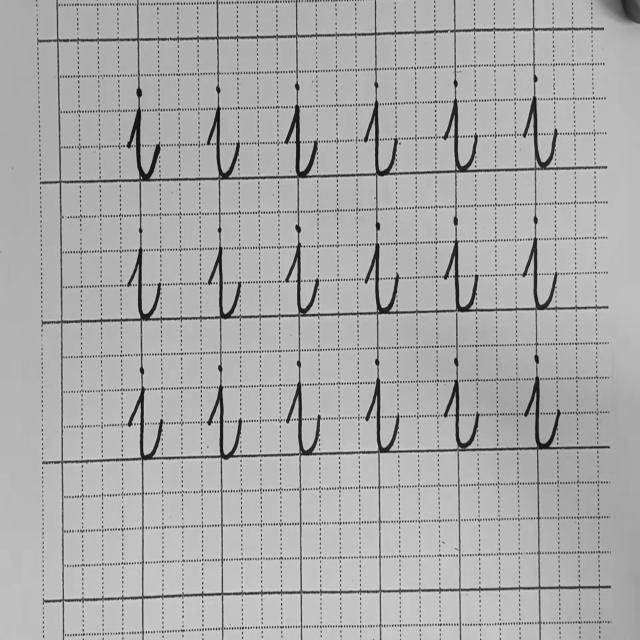 i i i i i i
i i i i i i
i i i i i i